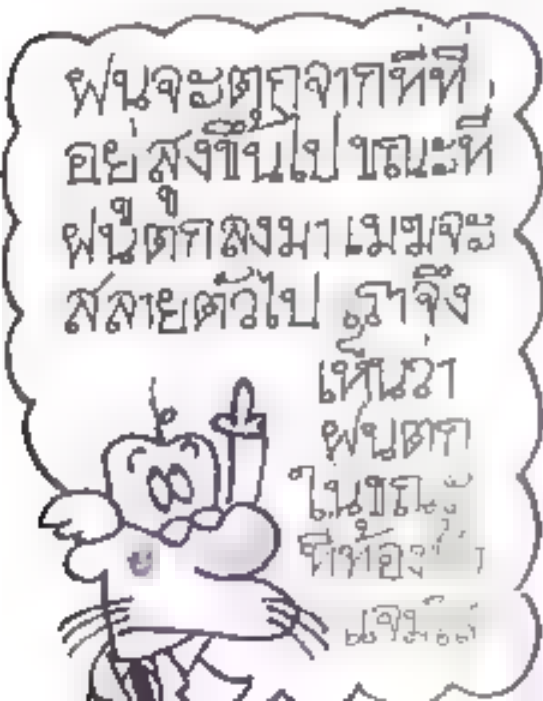 ฝนจะตกจากที่ที่
อยู่สูงขึ้นไป ขณะที่
ฝนตกลงมา เมฆจะ
สลายตัวไป เราจึง
เห็นว่า
ฝนตก
ในขณะ
ที่ท้องฟ้า